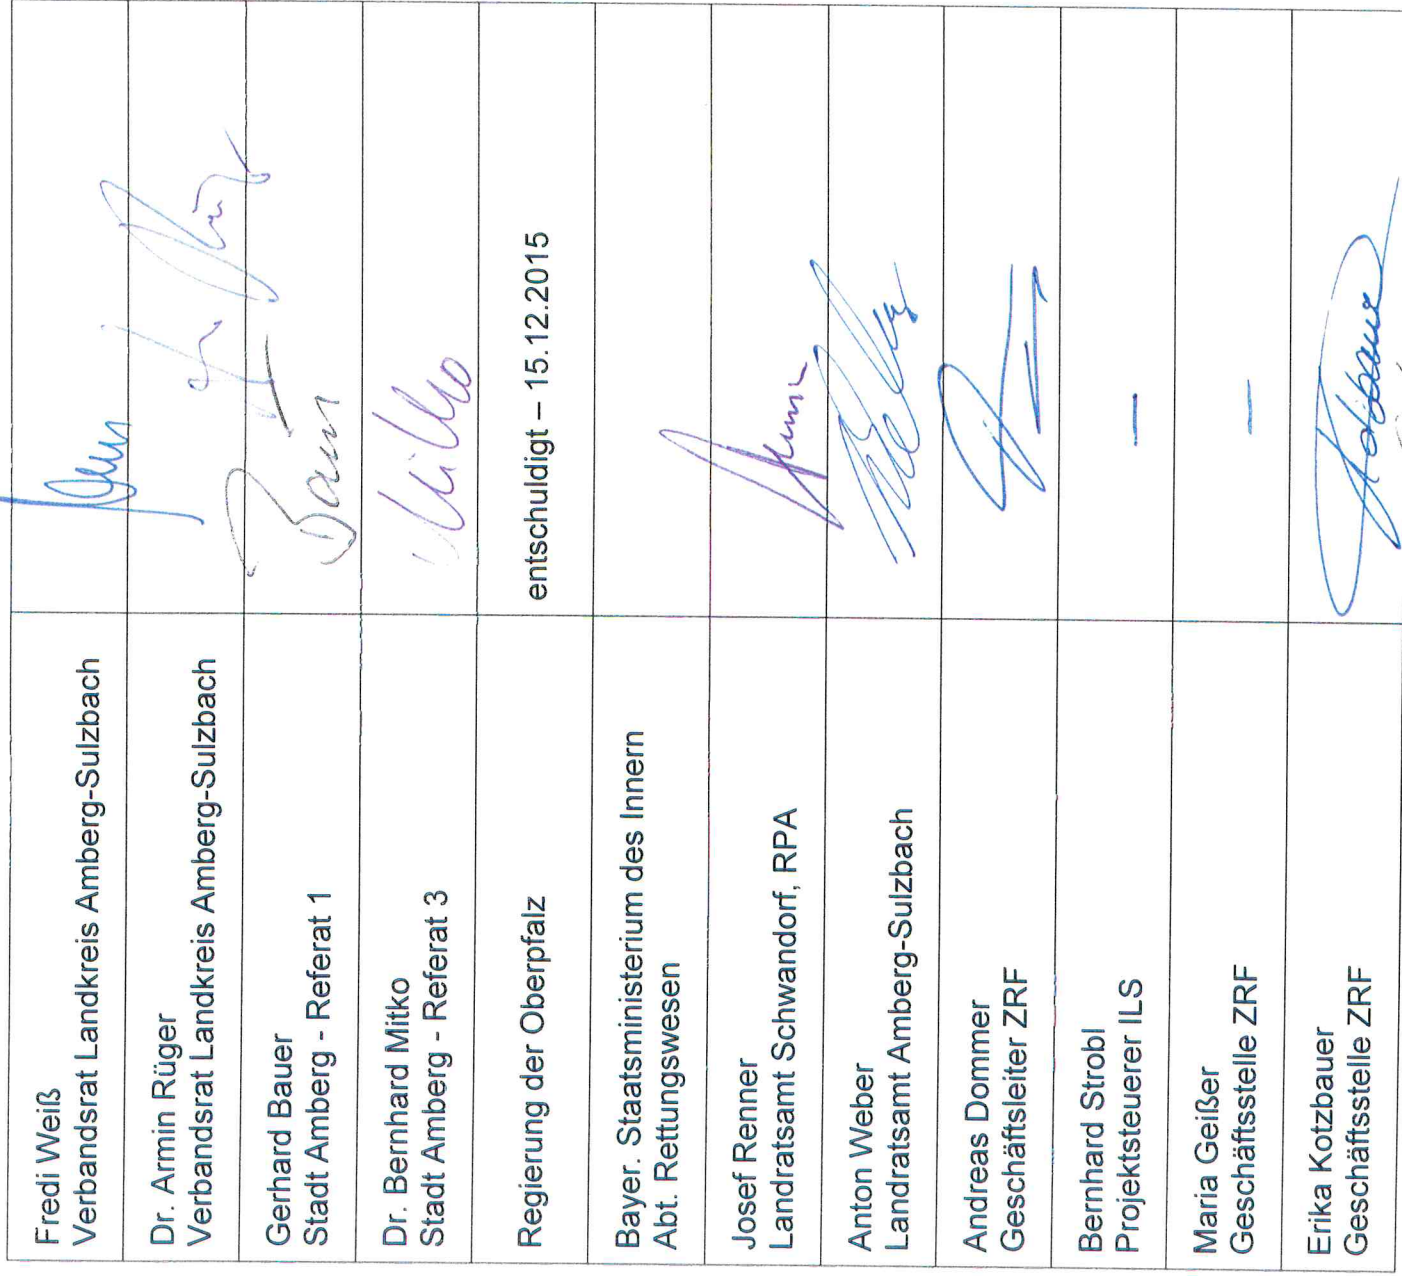 Fredi Weiß
Verbandsrat Landkreis Amberg-Sulzbach
Dr. Armin Rüger
Verbandsrat Landkreis Amberg-Sulzbach
Gerhard Bauer
Stadt Amberg - Referat 1
Dr. Bernhard Mitko
Stadt Amberg - Referat 3
Mitko
Regierung der Oberpfalz
entschuldigt – 15.12.2015
Bayer. Staatsministerium des Innern
Abt. Rettungswesen
Josef Renner
Landratsamt Schwandorf, RPA
Anton Weber
Landratsamt Amberg-Sulzbach
Andreas Dommer
Geschäftsleiter ZRF
Bernhard Strobl
Projektsteuerer ILS
–
Maria Geißer
Geschäftsstelle ZRF
–
Erika Kotzbauer
Geschäftsstelle ZRF